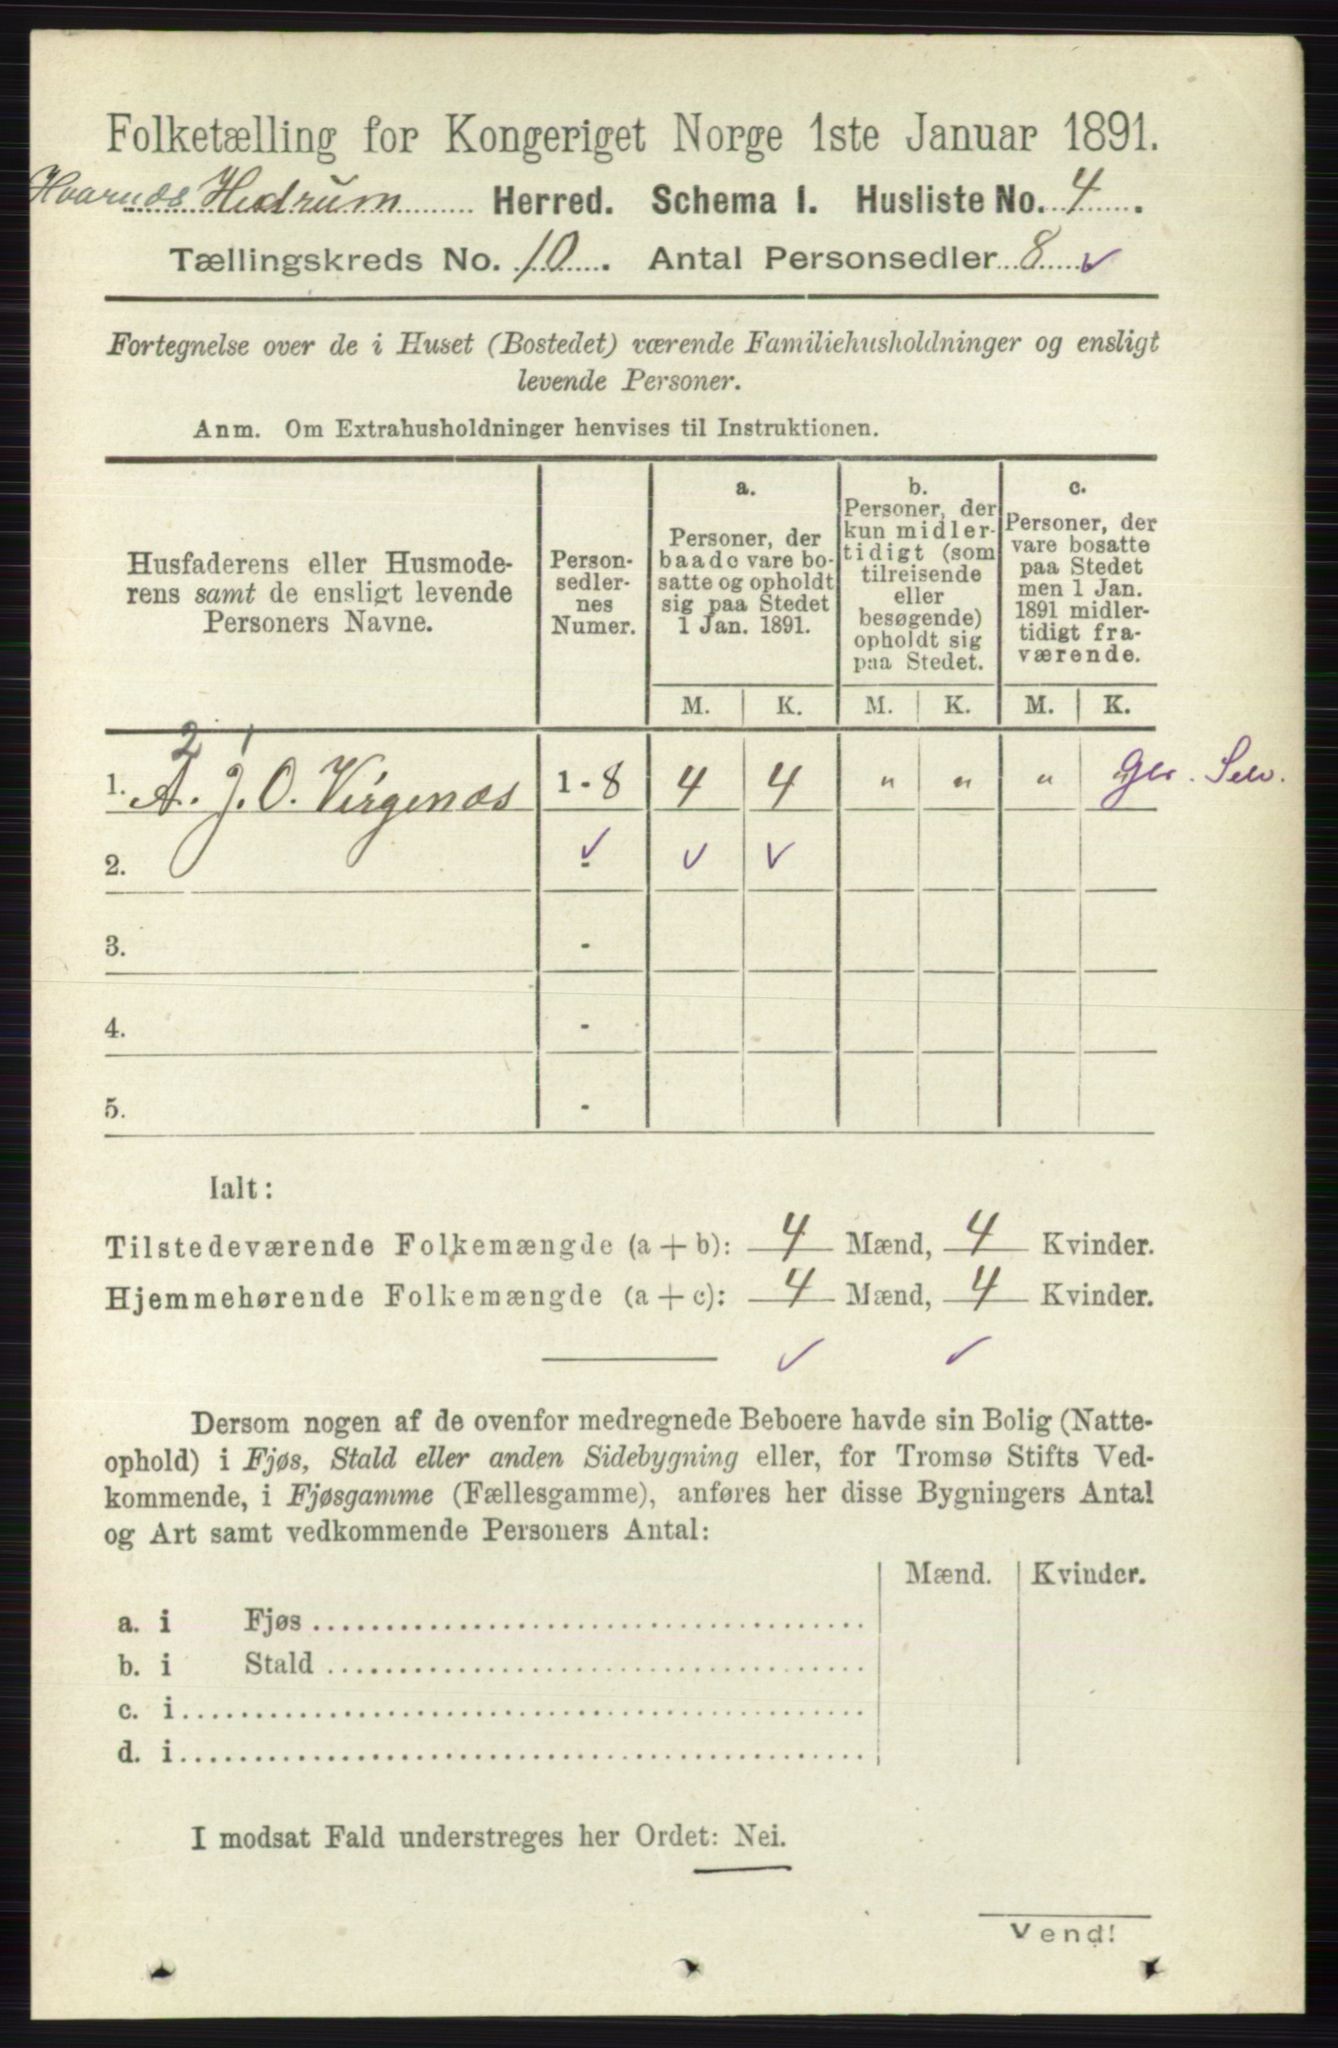 Folketælling for Kongeriget Norge 1ste Januar 1891.
Hvarnæs Hedrum Herred. Schema I. Husliste No. 4.
Tællingskreds No. 10. Antal Personsedler 8 ✓
Fortegnelse over de i Huset (Bostedet) værende Familiehusholdninger og ensligt
levende Personer.
Anm. Om Extrahusholdninger henvises til Instruktionen.
Husfaderens eller Husmode-
rens samt de ensligt levende
Personers Navne.
Person-
sedler-
nes
Numer.
a.
Personer, der
baade vare bo-
satte og opholdt
sig paa Stedet
1 Jan. 1891.
b.
Personer, der
kun midler-
tidigt (som
tilreisende
eller
besøgende)
opholdt sig
paa Stedet.
c.
Personer, der
vare bosatte
paa Stedet
men 1 Jan.
1891 midler-
tidigt fra-
værende.
M. K. M. K. M. K.
2 1
1. A. J. O. Virgenæs 1 - 8 4 4 " " "
2. ✓ - ✓ ✓
3. -
4. -
5. -
Ialt:
Tilstedeværende Folkemængde (a + b): 4 Mænd, 4 Kvinder.
Hjemmehørende Folkemængde (a + c): 4 Mænd, 4 Kvinder.
✓ ✓
Dersom nogen af de ovenfor medregnede Beboere havde sin Bolig (Natte-
ophold) i Fjøs, Stald eller anden Sidebygning eller, for Tromsø Stifts Ved-
kommende, i Fjøsgamme (Fællesgamme), anføres her disse Bygningers Antal
og Art samt vedkommende Personers Antal:
Mænd. Kvinder.
a. i Fjøs
b. i Stald
c. i
d. i
I modsat Fald understreges her Ordet: Nei.
Vend!